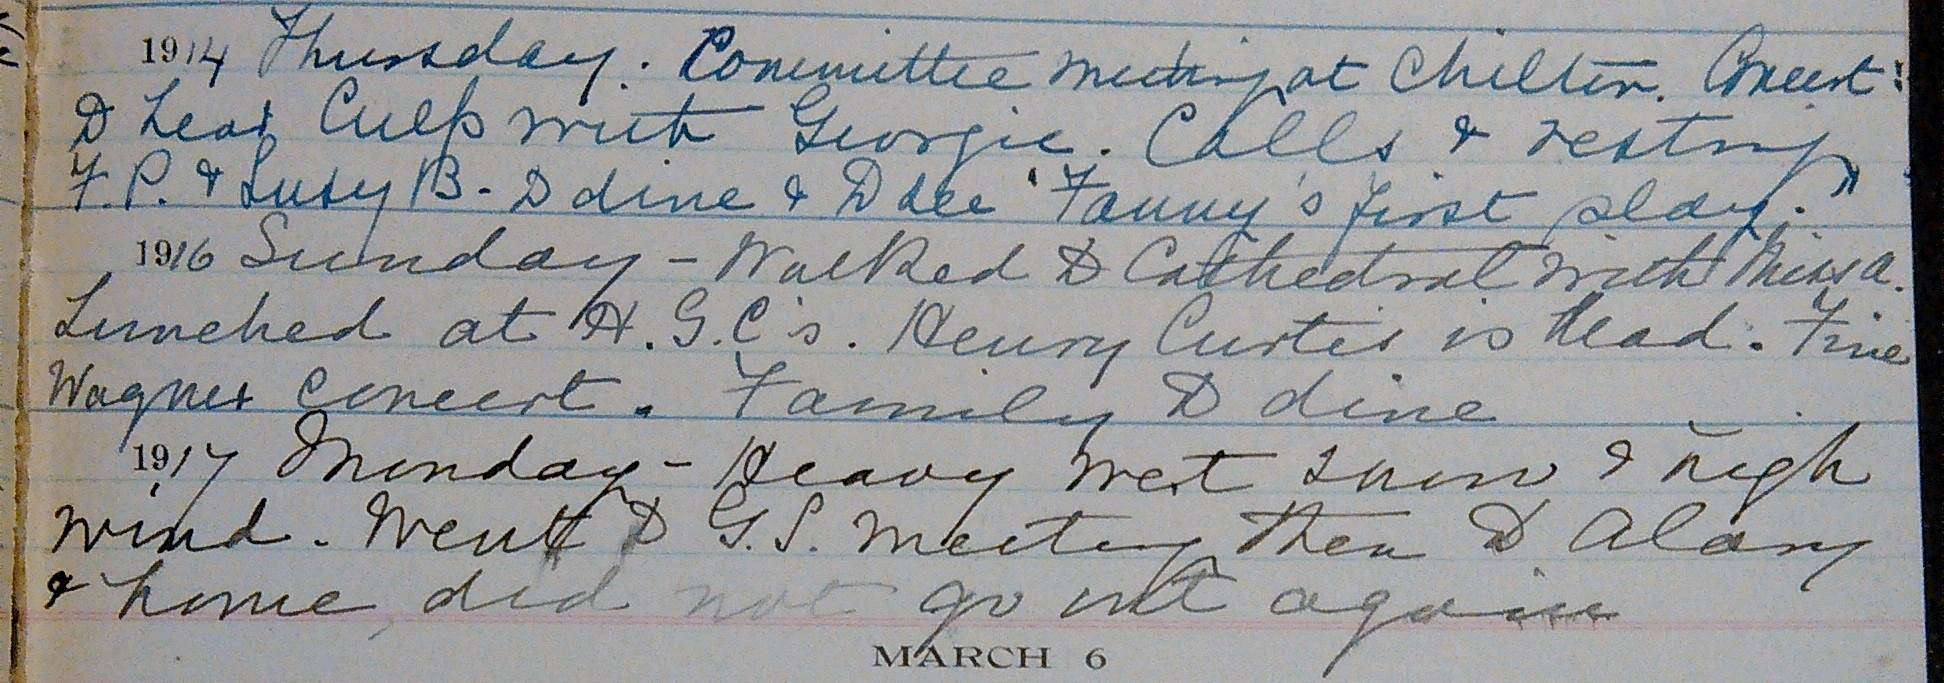 1914 Thursday. Committee meeting at Chilton. Concert
to hear Culp with Georgie. Calls & resting
F.P. & Susy B - to dine & to see "Fanny's first play."
1916 Sunday - Walked to Cathedral with Miss A.
Lunched at H.G.C's. Henry Curtis is dead. Fine
Wagner concert. Family to dine
1917 Monday - Heavy wet snow & high
wind. Went to G.S. meeting then to Alary
& home, did not go out again
MARCH 6